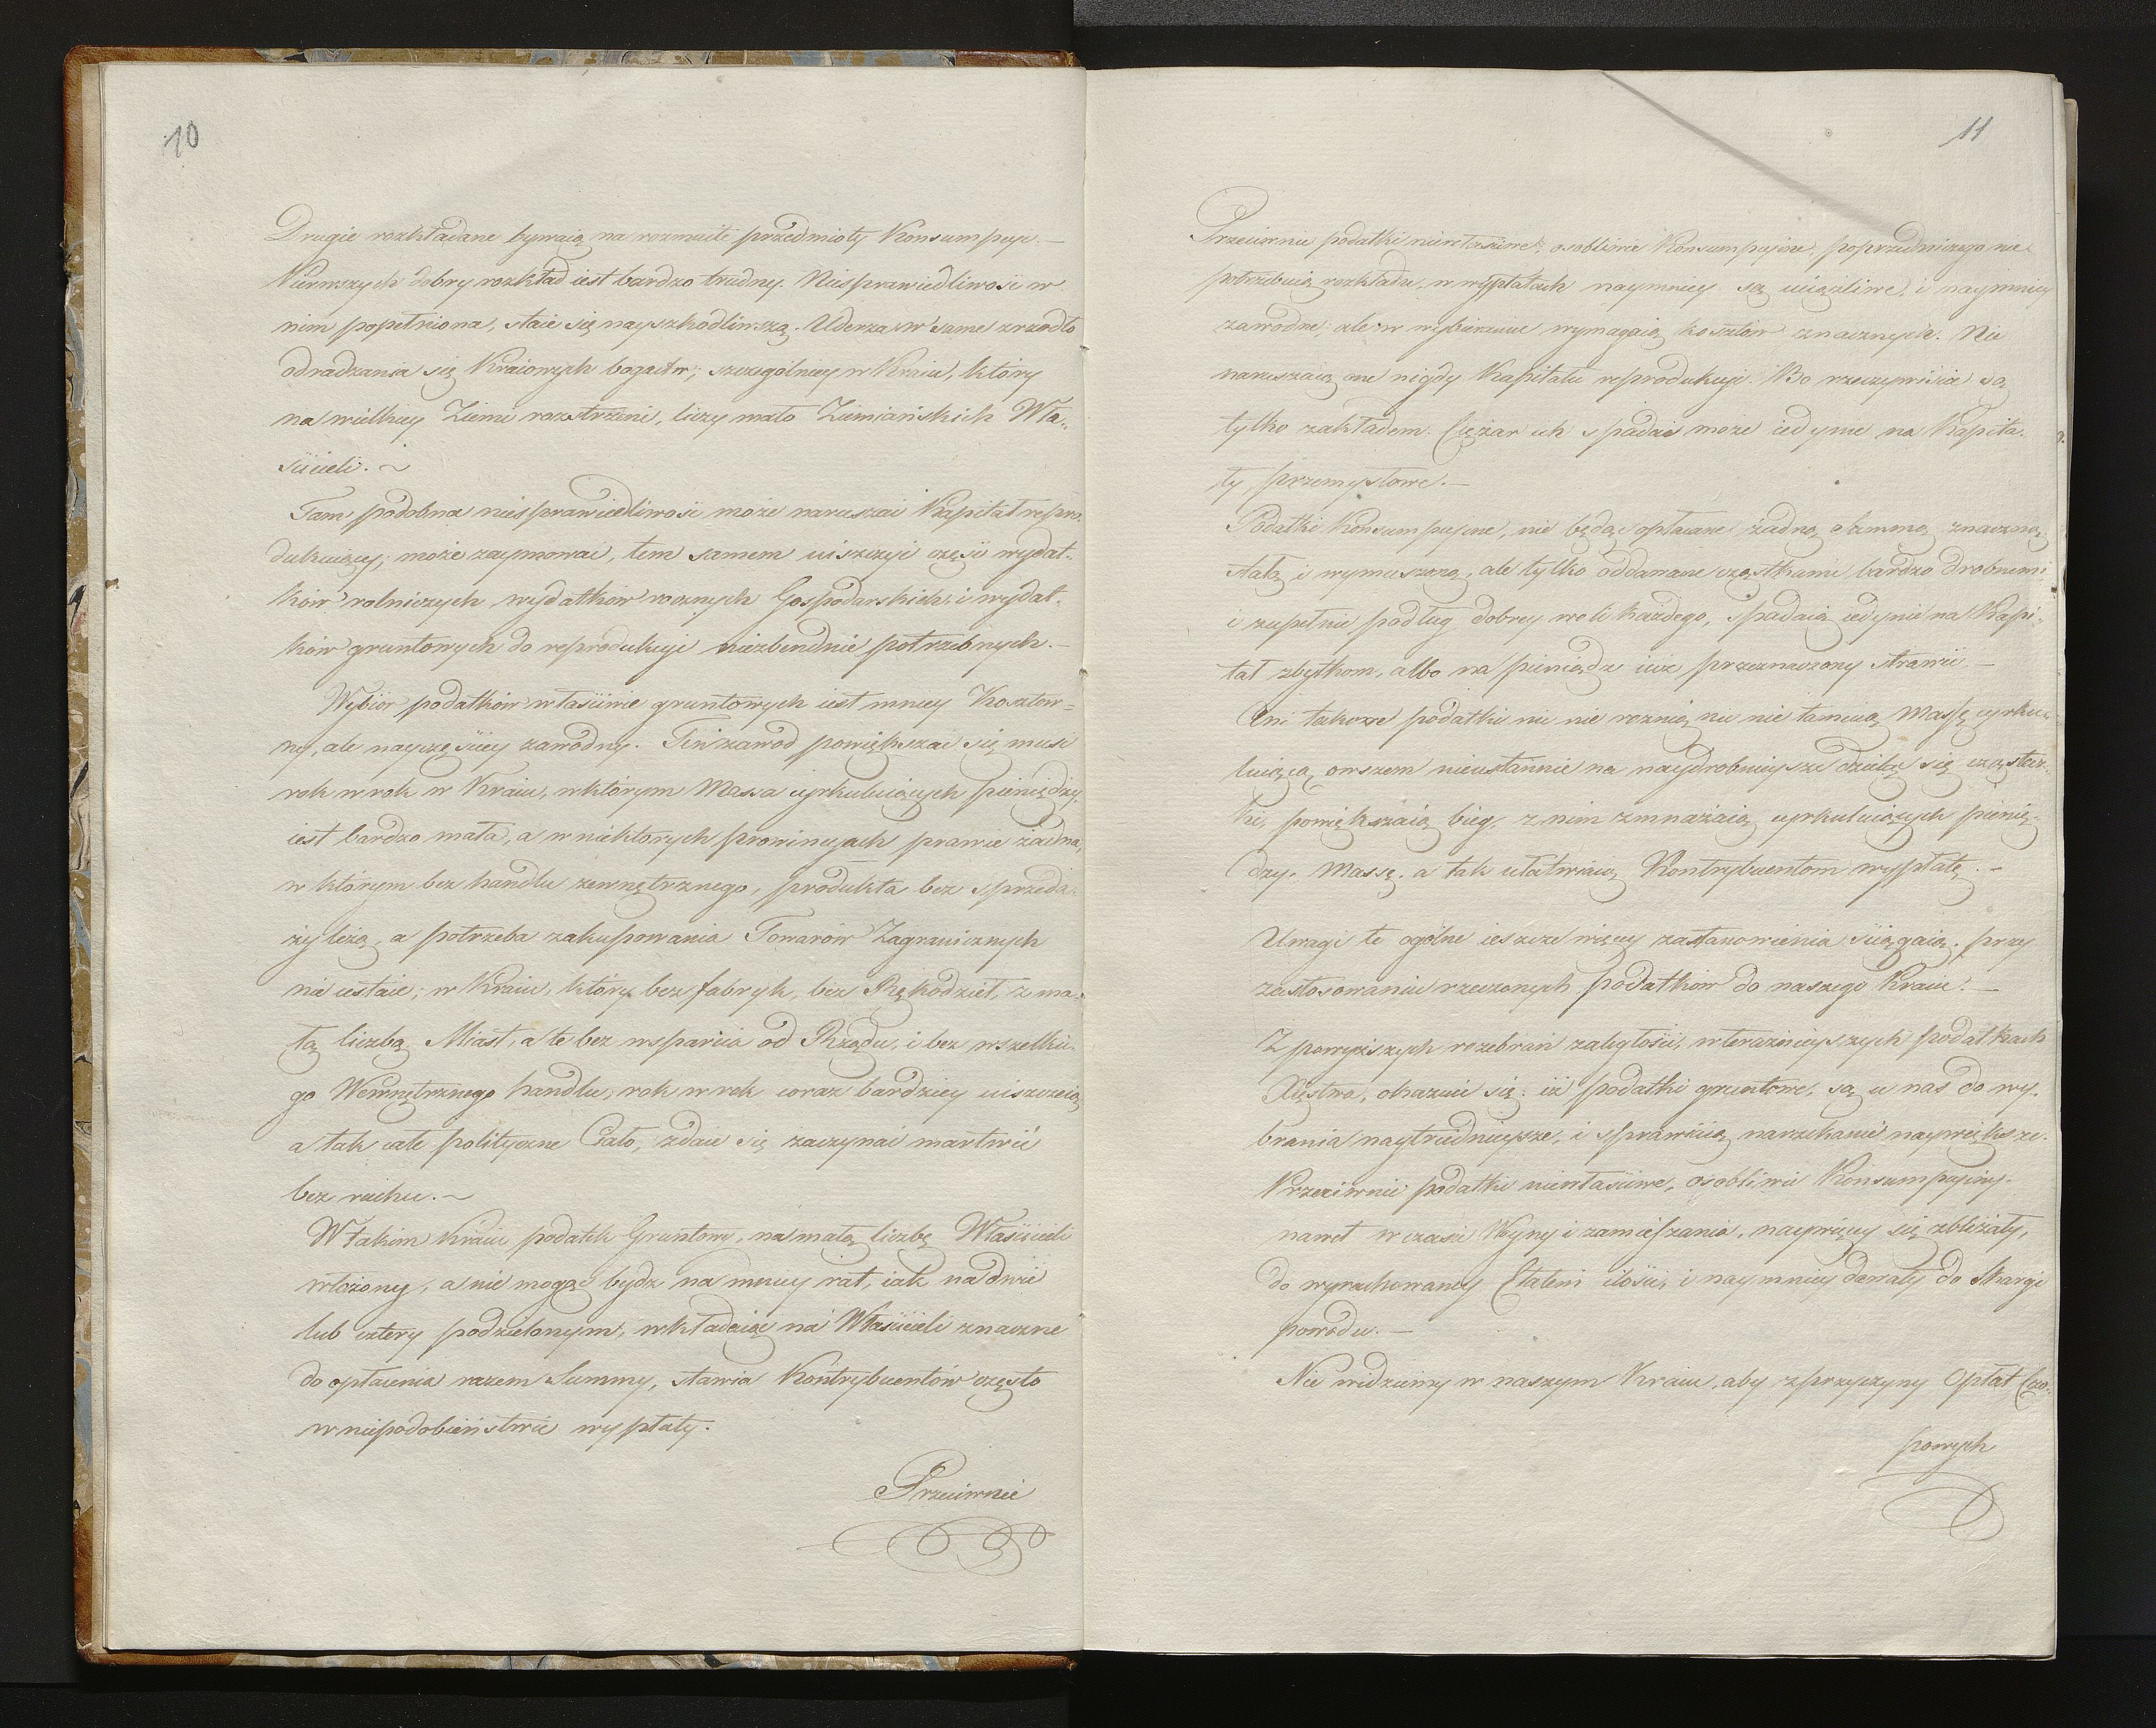 10
Drugie rozkładane bywaią na rozmaite przedmioty Konsumpcyi.—
Pierwszych dobry rozkład iest bardzo trudny. Niesprawiedliwość w
nim popełniona, staie się nayszkodliwszą. Uderza w same zrzodło
odradzania się Kraiowych bogactw; szczególniey w Kraiu, który
na wielkiey Ziemi rozstrzeni, liczy mało Ziemiańskich Wła„
ścicieli.~
Tam podobna niesprawiedliwość może naruszać Kapitał repro„
dukuiący; może zaymować, tem samem niszczyć część wydat„
ków rolniczych wydatków rocznych Gospodarskich, i wydat„
ków gruntowych do reprodukcyi niezbendnie potrzebnych.—
Wybiór podatków właściwie gruntowych iest mniey Kosztow=
ny, ale nayczęściey zawodny. Ten zawod powiększać się musi
rok w rok w Kraiu, w którym Massa cyrkuluiących pieniędzy,
iest bardzo mała, a w niektorych prowincyach prawie żadna,
w którym bez handlu zewnętrznego, produkta bez sprzeda„
ży leżą, a potrzeba zakupowania Towarów Zagranicznych
nie ustaie; w Kraiu, który bez fabryk, bez Rękodzieł, z ma„
łą liczbą Miast, a te bez wsparcia od Rządu, i bez wszelkie„
go Wewnętrznego handlu, rok w rok coraz bardziey niszczeią
a tak całe polityczne Ciało, zdaie się zaczynać martwić
bez ruchu.~
W takim Kraiu podatek Gruntowy, na małą liczbę Właścicieli
włożony, a nie mogąc bydź na mniey rat, iak na dwie
lub cztery podzielonym, wkładaiąc na Właścicieli znaczne
do opłacenia razem Summy, stawia Kontrybuentów często
w niepodobieństwie wypłaty.
Przeciwnie
11
Przeciwnie podatki niewłaściwe, osobliwie Konsumpcyine, poprzedniczego nie
potrzebuią rozkładu, w wypłatach naymniey są uciążliwe, i naymniey
zawodne; ale w wybieraniu wymagaią kosztów znacznych. Nie
naruszaią one nigdy Kapitału reprodukcyi. Bo rzeczywiście są
tylko zakładem. Ciężar ich spadać może iedynie na Kapita„
ły przemysłowe.—
Podatki Konsumpcyine, nie będąc opłacane żadną summą znaczną
stałą i wymuszoną, ale tylko oddawane cząstkami bardzo drobnemi
i zupełnie podług dobrey woli każdego, spadaią iedynie na Kapi„
tał zbytkom, albo na pieniądze iuż przeznaczony strawić.—
Ani takowe podatki nic nie rożnią nic nie tamuią Massę cyrku„
luiącą, owszem nieustannie na naydrobnieysze dzieląc się cząstecz„
ki, powiększaią bieg, z nim zmnażaią cyrkuluiących pienię„
dzy Massę, a tak ułatwiaią Kontrybuentom wypłatę.—
Uwagi te ogólne ieszcze więcey zastanowienia ściągaią, przy
zastosowaniu rzeczonych podatków do naszego Kraiu.—
Z powyższych rozebrań zaległości, w teraźnieyszych podatkach
Xięstwa, okazuie się: iż podatki gruntowe, są u nas do wy„
brania naytrudnieysze, i sprawuią narzekanie naywiększe.
Przeciwnie podatki niewłaściwe, osobliwie Konsumpcyiny„
nawet w czasie Woyny i zamieszania, naywięcey się zbliżały,
do wyrachowaney Etatem ilości, i naymniey dawały do Skargi
powodu.—
Nie widziemy w naszym Kraiu, aby z przyczyny Opłat Czo„
powych